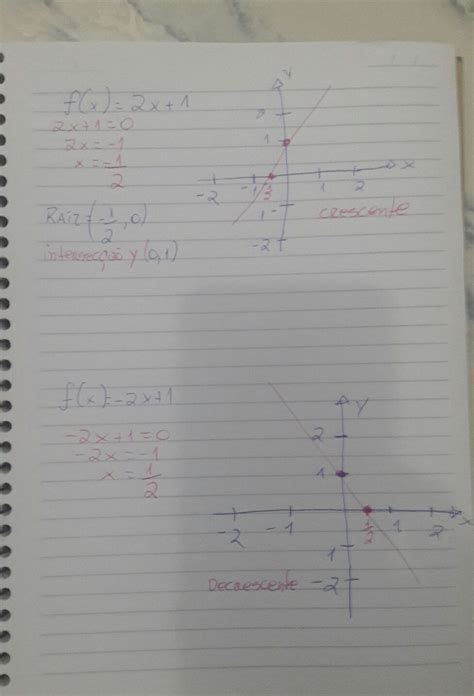 f(x) = 2x+1
2x+1=0
2x=-1
x=-1/2
Raiz=(-1/2, 0)
intersecção y (0,1)
y
2
1
-2 -1 1 2 x
1-
-2
crescente
f(x)=-2x+1
-2x+1=0
-2x=-1
x=1/2
y
2
1
-2 -1 1/2 1 2 x
1
-2
Decrescente